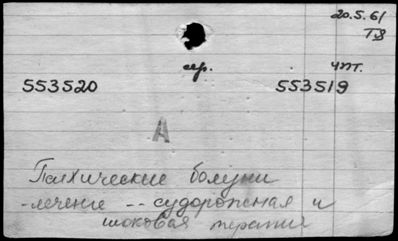 20.5.61
TS
сер. чит.
553520 553519
A
Психические болезни
- лечение -- судорожная и
шоковая терапия